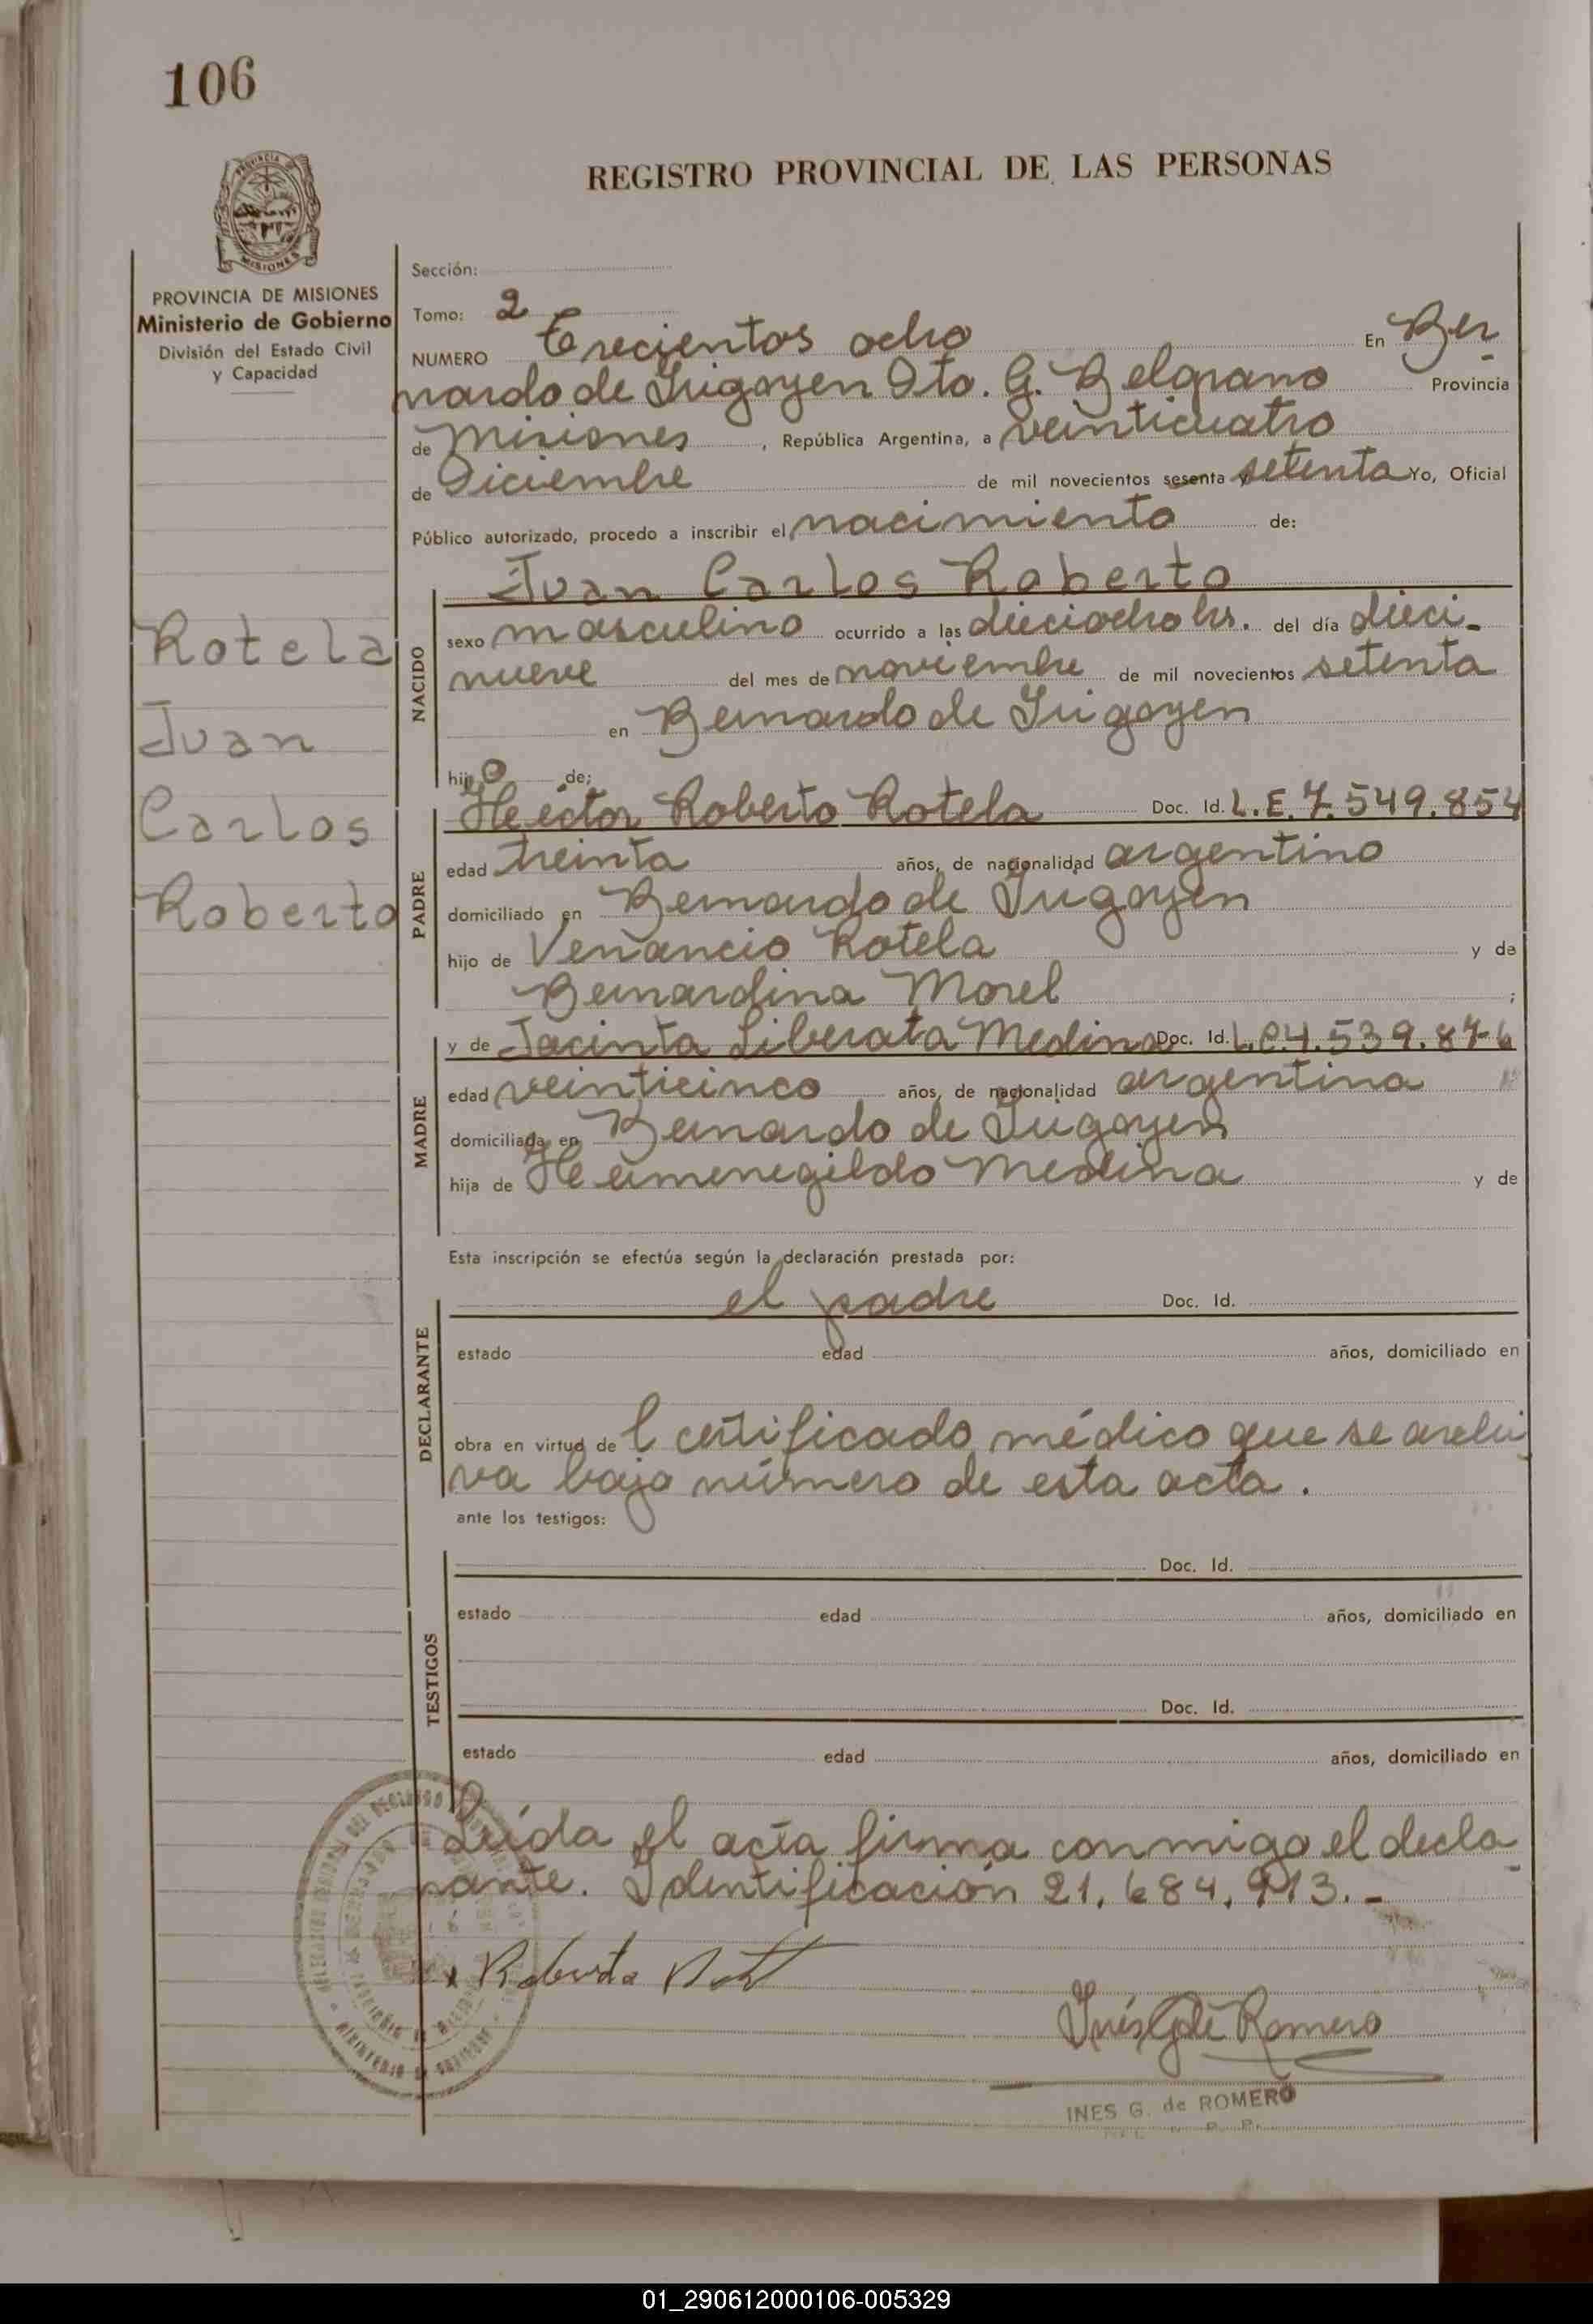 106
REGISTRO PROVINCIAL DE LAS PERSONAS
MISIONES
PROVINCIA DE MISIONES
Ministerio de Gobierno
División del Estado Civil
y Capacidad
Rotela
Juan
Carlos
Roberto
Sección:
Tomo: 2
NUMERO Trecientos ocho En Ber
nardo de Irigoyen Dto. G. Belgrano Provincia
de Misiones , República Argentina, a veinticuatro
de Diciembre de mil novecientos sesenta y setenta Yo, Oficial
Público autorizado, procedo a inscribir el nacimiento de:
Juan Carlos Roberto
NACIDO
sexo masculino ocurrido a las dieciocho hs. del día dieci-
nueve del mes de noviembre de mil novecientos setenta
en Bernardo de Irigoyen
hijo de:
PADRE
Héctor Roberto Rotela Doc. Id. L.E. 7.549.854
edad treinta años, de nacionalidad argentino
domiciliado en Bernardo de Irigoyen
hijo de Venancio Rotela y de
Bernardina Morel ;
MADRE
y de Jacinta Liberata Medina Doc. Id. L.C. 4.539.876
edad veinticinco años, de nacionalidad argentina
domiciliada en Bernardo de Irigoyen
hija de Hermenegildo Medina y de
Esta inscripción se efectúa según la declaración prestada por:
DECLARANTE
el padre Doc. Id.
estado edad años, domiciliado en
obra en virtud de l certificado médico que se archi
va bajo número de esta acta.
ante los testigos:
TESTIGOS
Doc. Id.
estado edad años, domiciliado en
Doc. Id.
estado edad años, domiciliado en
Leída el acta firma conmigo el decla
rante. Identificación 21.684.913.-
x Roberto
Inés G de Romero
INES G. de ROMERO
01_290612000106-005329